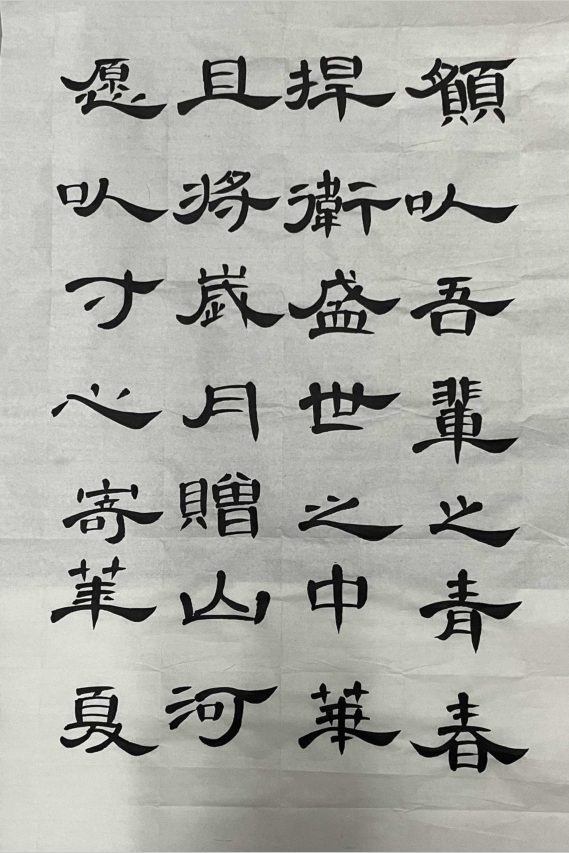 願以吾輩之青春
捍衛盛世之中華
且将歲月贈山河
愿以寸心寄華夏